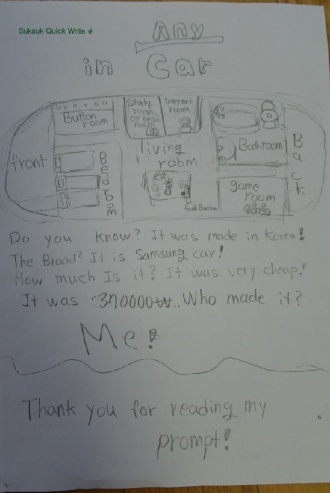 Sukauk Quick Write #
Any
in Car
Button room
Study room or new room
Internet room
Bathroom
front
Bedroom
living room
Back
game room
Do you know? It was made in Korea!
The Brand? It is Samsung car!
How much Is it? It was very cheap!
It was 370000₩.. Who made it?
Me!
Thank you for reading my
prompt!